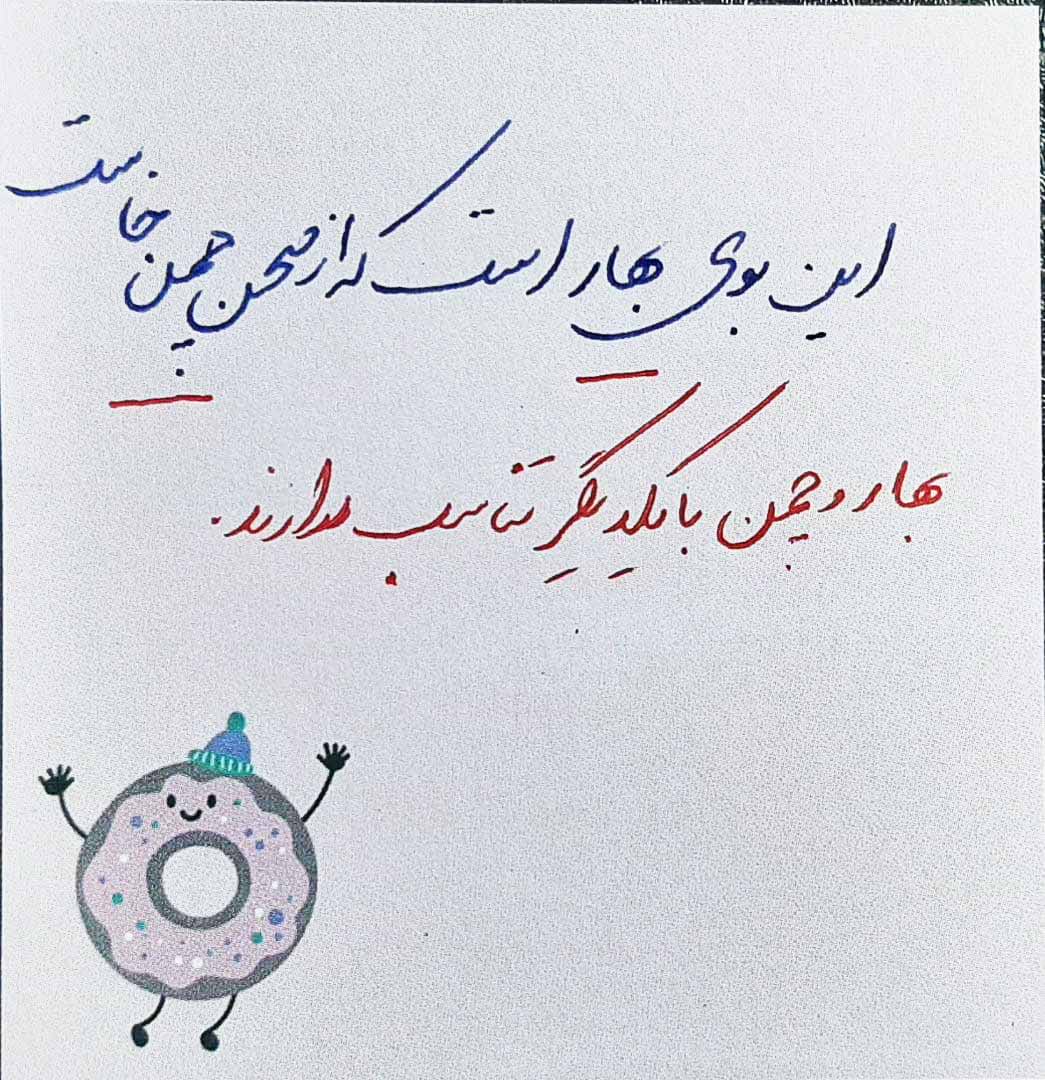 این بوی بهار است که از صحن چمن خاست
بهار و چمن با یکدیگر تناسب دارند.